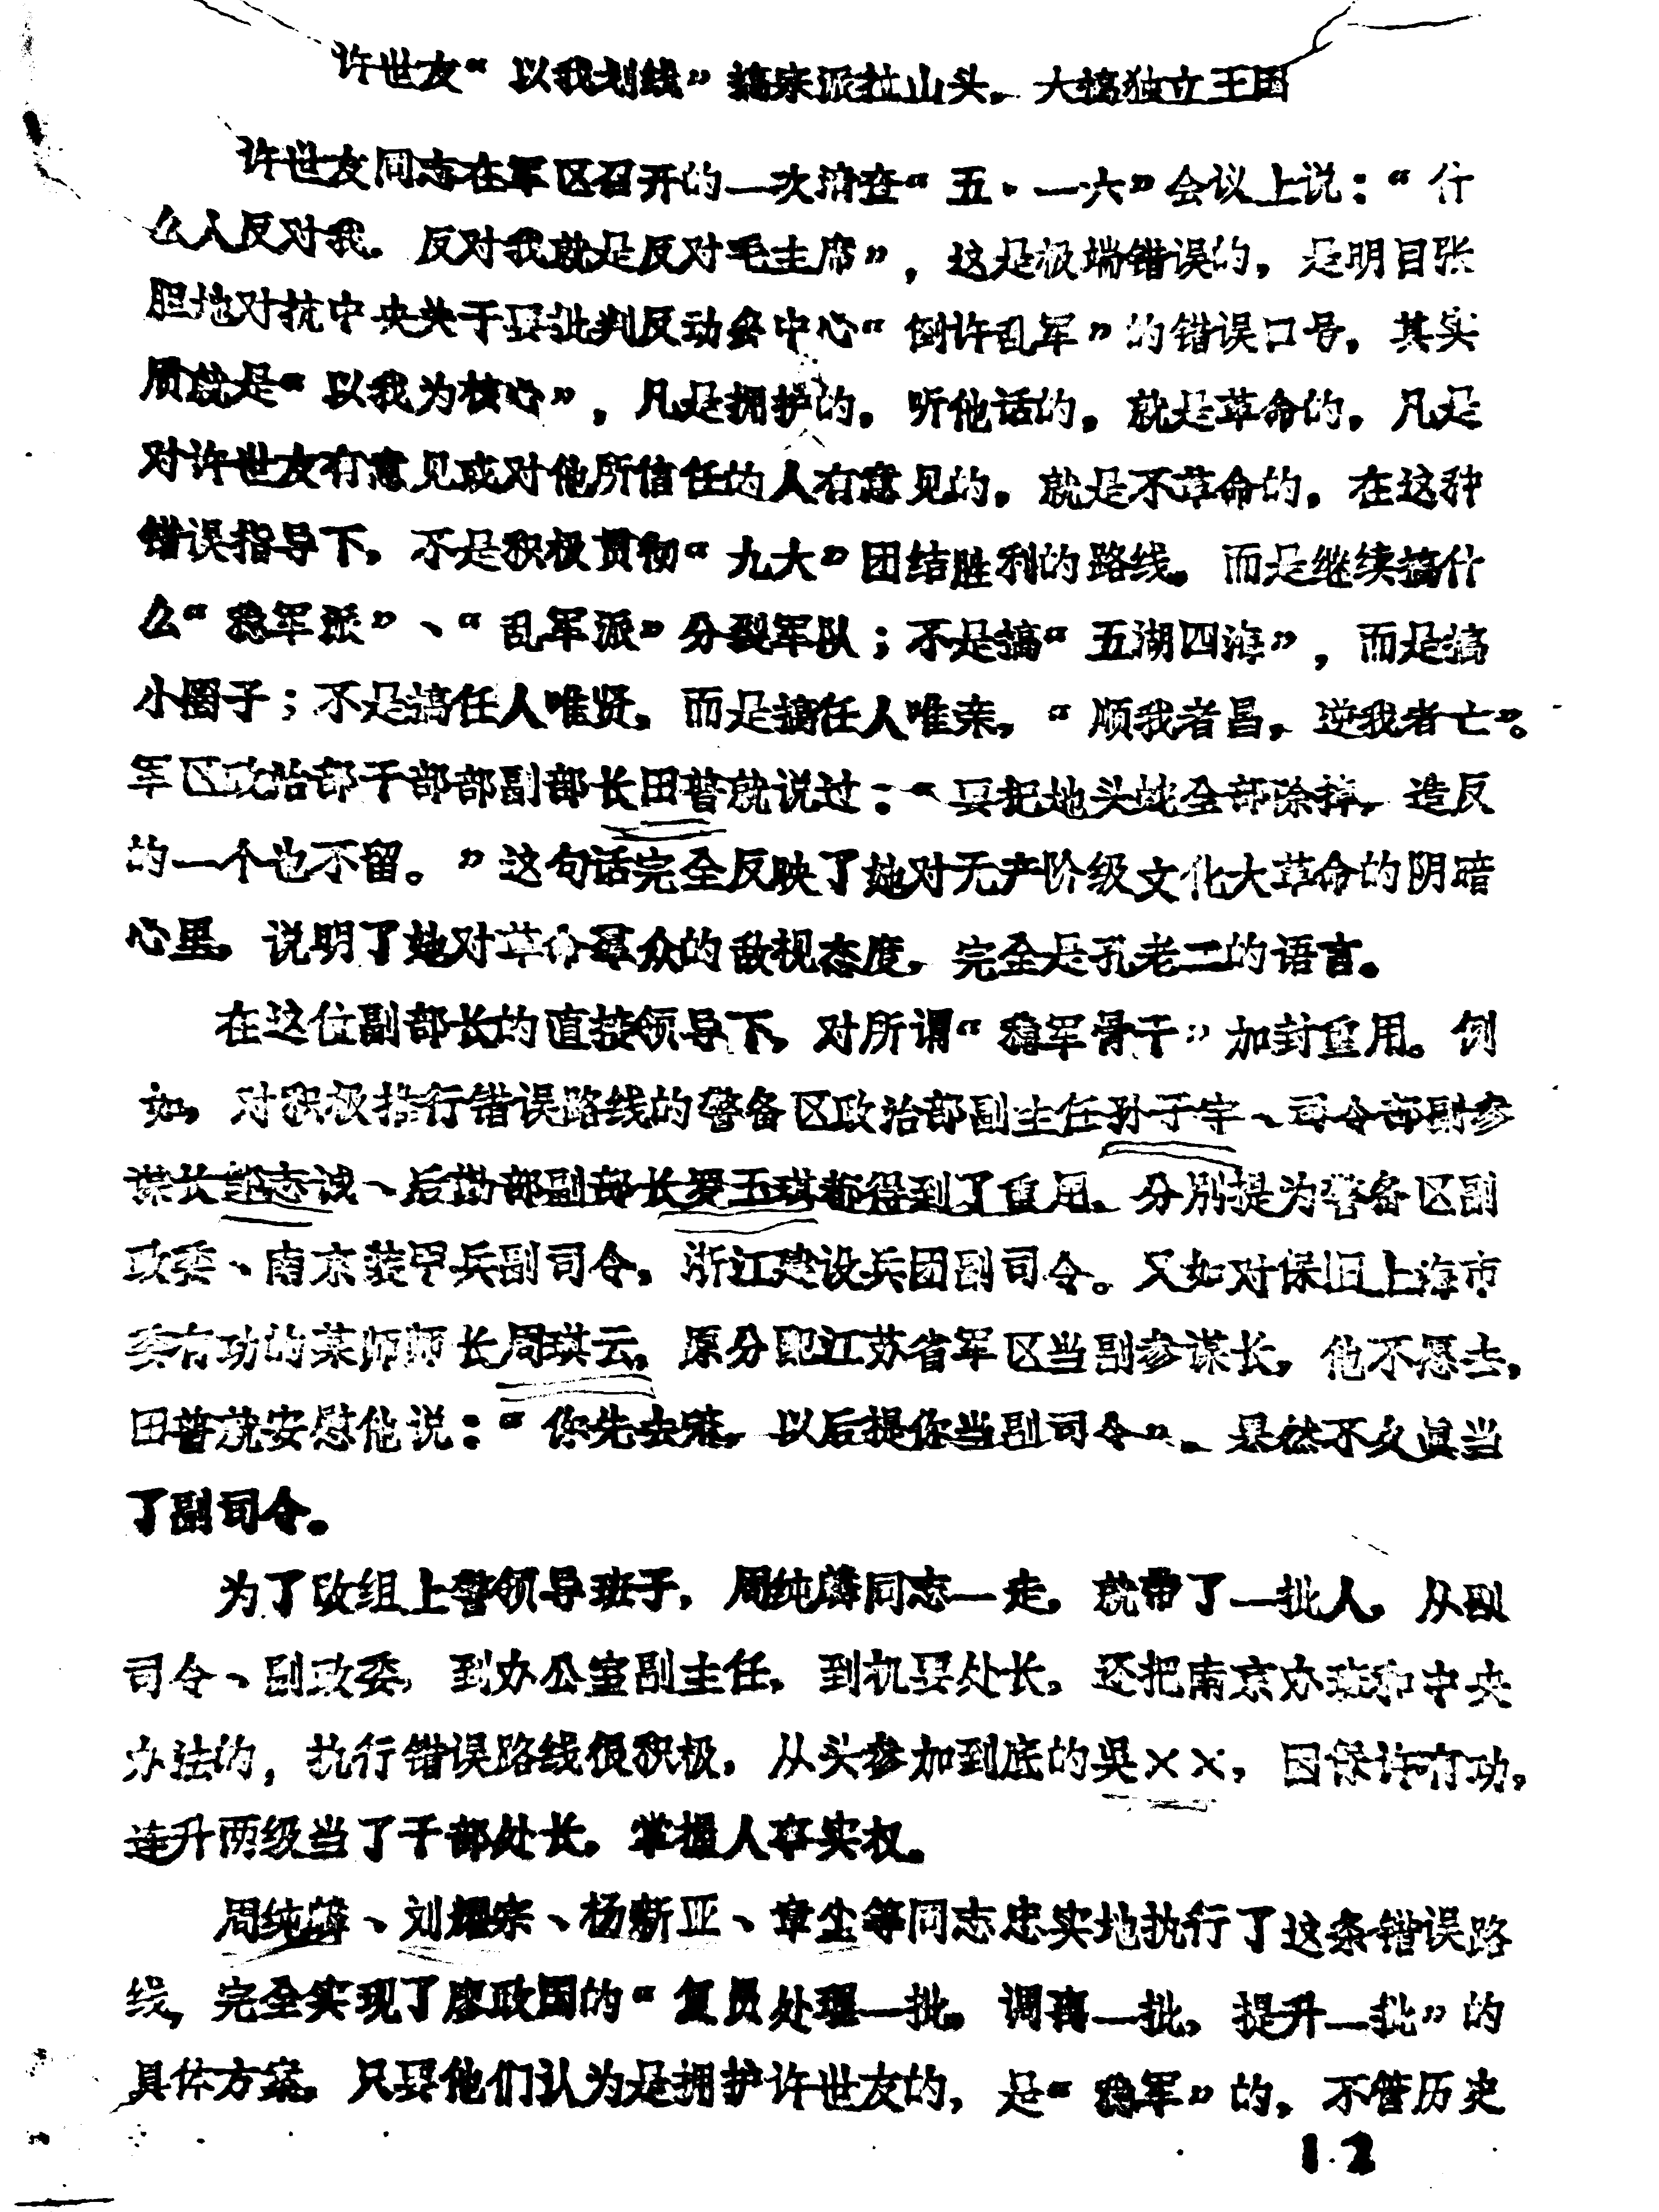 许世友“以我划线”搞宗派拉山头，大搞独立王国
许世友同志在军区召开的一次清查“五·一六”会议上说：“什
么人反对我．反对我就是反对毛主席”，这是极端错误的，是明目张
胆地对抗中央关于要批判反动多中心“倒许乱军”的错误口号，其实
质就是“以我为核心”，凡是拥护的，听他话的，就是革命的，凡是
对许世友有意见或对他所信任的人有意见的，就是不革命的，在这种
错误指导下，不是积极贯彻“九大”团结胜利的路线，而是继续搞什
么“稳军派”、“乱军派”分裂军队；不是搞“五湖四海”，而是搞
小圈子；不是搞任人唯贤，而是搞任人唯亲，“顺我者昌，逆我者亡”。
军区政治部干部部副部长田普就说过：“要把地头蛇全部除掉，造反
的一个也不留。”这句话完全反映了她对无产阶级文化大革命的阴暗
心里，说明了她对革命群众的敌视态度，完全是孔老二的语言。
在这位副部长的直接领导下，对所谓“稳军骨干”加封重用。例
如，对积极推行错误路线的警备区政治部副主任孙于宇、司令部副参
谋长志诚、后勤部副部长罗玉琪都得到了重用，分别提为警备区副
政委、南京装甲兵副司令，浙江建设兵团副司令。又如对保旧上海市
委有功的某师师长周琪云，原分配江苏省军区当副参谋长，他不愿去，
田普就安慰他说：“你先去嘛，以后提你当副司令”，果然不久真当
了副司令。
为了改组上警领导班子，周纯麟同志一走，就带了一批人，从副
司令、副政委，到办公室副主任，到机要处长，还把南京办班和中央
办法的，执行错误路线很积极，从头参加到底的吴××，因保许有功，
连升两级当了干部处长，掌握人事实权。
周纯麟、刘耀宗、杨新亚、章尘等同志忠实地执行了这条错误路
线，完全实现了廖政国的“复员处理一批，调离一批，提升一批”的
具体方案，只要他们认为是拥护许世友的，是“稳军”的，不管历史
12